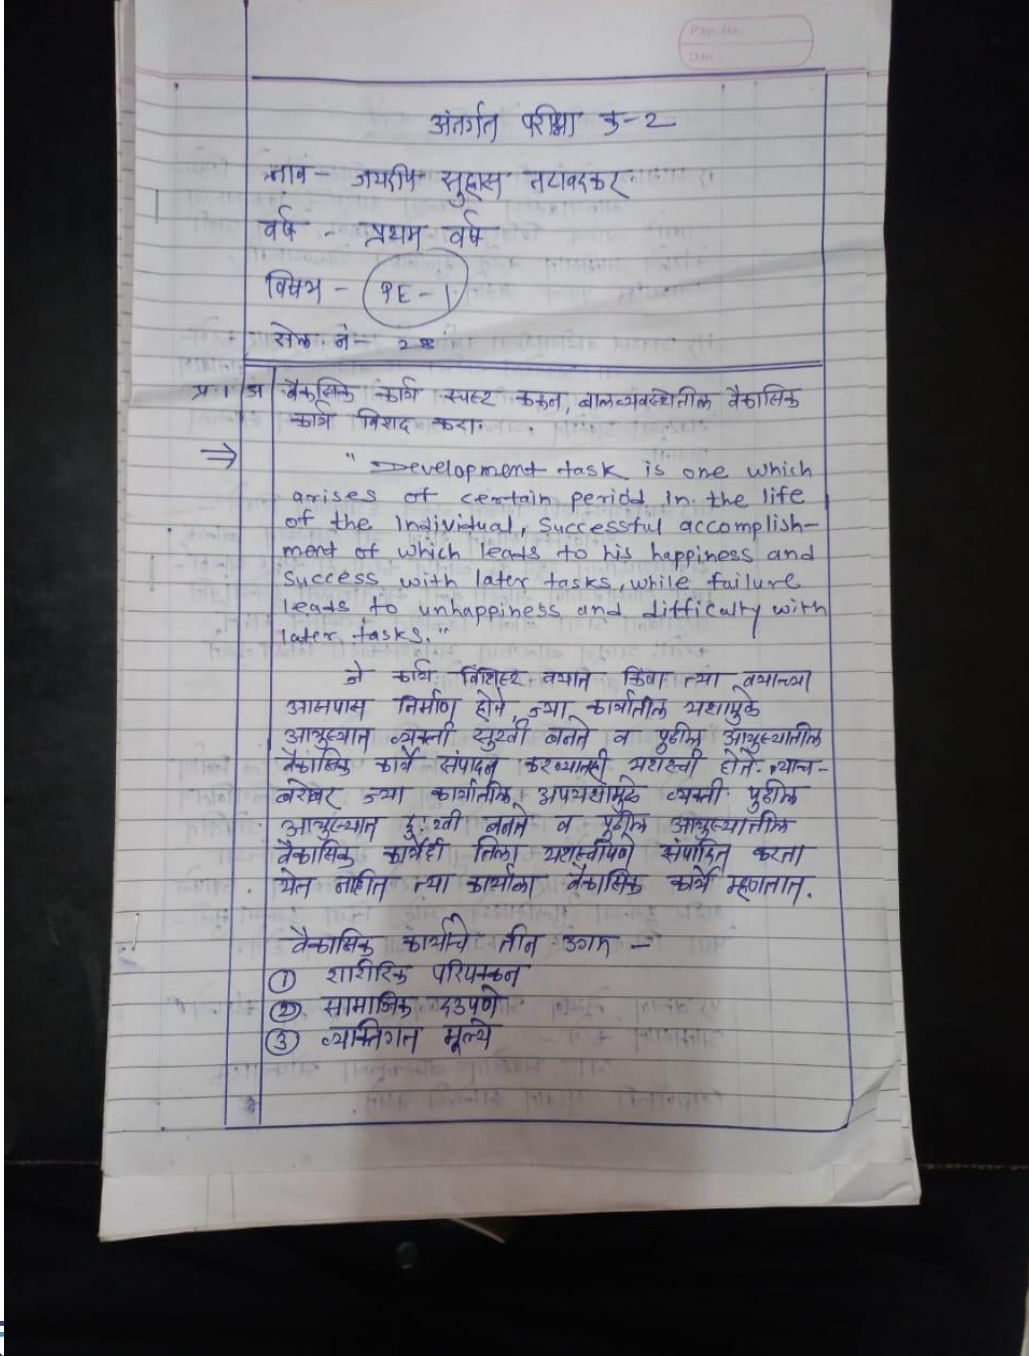 Page No.
Date :
अंतर्गत परीक्षा क्र-२
नाव - जयदीप सुहास नटावदकर
वर्ष - प्रथम वर्ष
विषय - १६-१
रोल. नं -
प्र १ अ वैकासिक कार्य स्पष्ट करून, बाल्यावस्थेतील वैकासिक
कार्य विशद करा.
⇒
" Development task is one which
arises of certain period in the life
of the Individual, Successful accomplish-
ment of which leads to his happiness and
Success with later tasks, while failure
leads to unhappiness and difficalty with
later tasks."
जे कार्य विशिष्ट वयात किंवा त्या वयाच्या
आसपास निर्माण होते, ज्या कार्यातील यशामुळे
आयुष्यात व्यक्ती सुखी बनते व पुढील आयुष्यातील
वैकासिक कार्ये संपादन करण्यातही यशस्वी होते. त्याच-
बरोबर ज्या कार्यातील अपयशामुळे व्यक्ती पुढील
आयुष्यात दुःखी बनते व पुढील आयुष्यातील
वैकासिक कार्येही तिला यशस्वीपणे संपादित करता
येत नाहीत त्या कार्याला वैकासिक कार्ये म्हणतात.
वैकासिक कार्याचे तीन उगम -
① शारीरिक परिपक्वन
② सामाजिक दडपणे
③ व्यक्तिगत मूल्ये